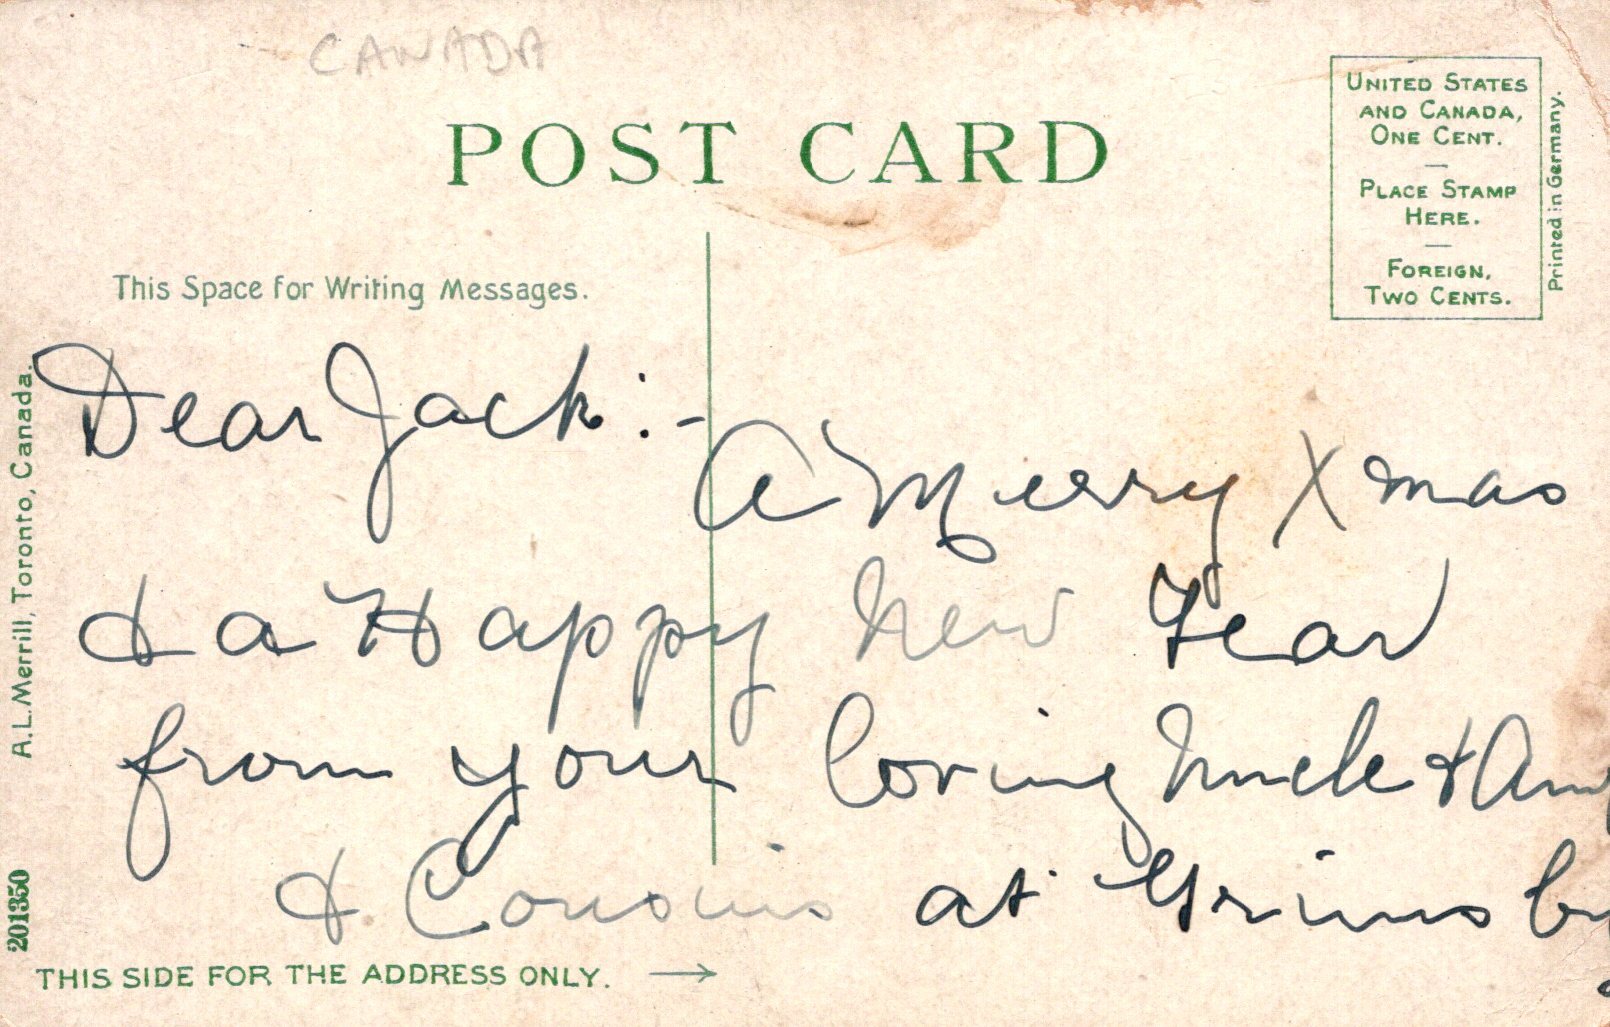 CANADA
POST CARD
UNITED STATES
AND CANADA,
ONE CENT.
PLACE STAMP
HERE.
FOREIGN,
TWO CENTS.
Printed in Germany.
This Space for Writing Messages.
Dear Jack :-
A Merry Xmas
& a Happy New Year
from your loving Uncle &
& Cousins at Grimsby
A.L. Merrill, Toronto, Canada.
201350
THIS SIDE FOR THE ADDRESS ONLY. →